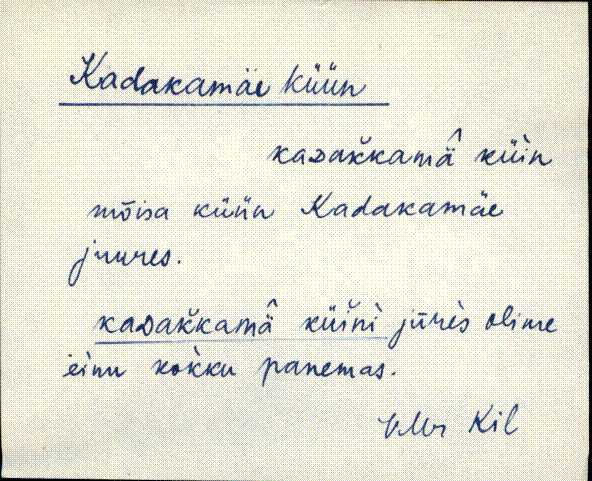 Kadakamäe küün
kaᴅak̆kamä̂ küìn
mõisa küün Kadakamäe
juures.
kaᴅak̆kamä̂ küĭnì jūrès olime
einu kòkku panemas.
Kil